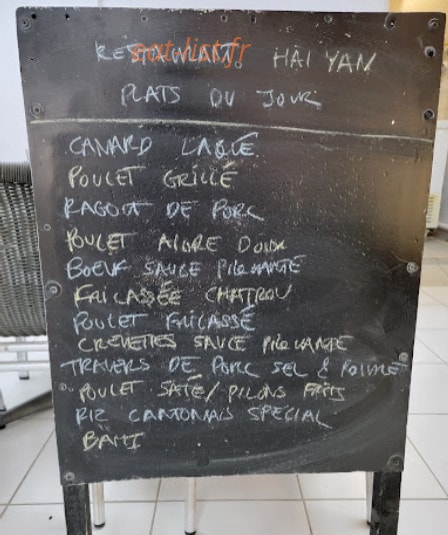 RESTAURANT HAI YAN
eat-list.fr
PLATS DU JOUR
CANARD LAQUÉ
POULET GRILLÉ
RAGOUT DE PORC
POULET AIGRE DOUX
BOEUF SAUCE PIQUANTE
FRICASSÉE CHATROU
POULET FRICASSÉ
CREVETTES SAUCE PIQUANTE
TRAVERS DE PORC SEL & POIVRE
POULET SATÉ/ PILONS FRITS
RIZ CANTONAIS SPECIAL
BAMI